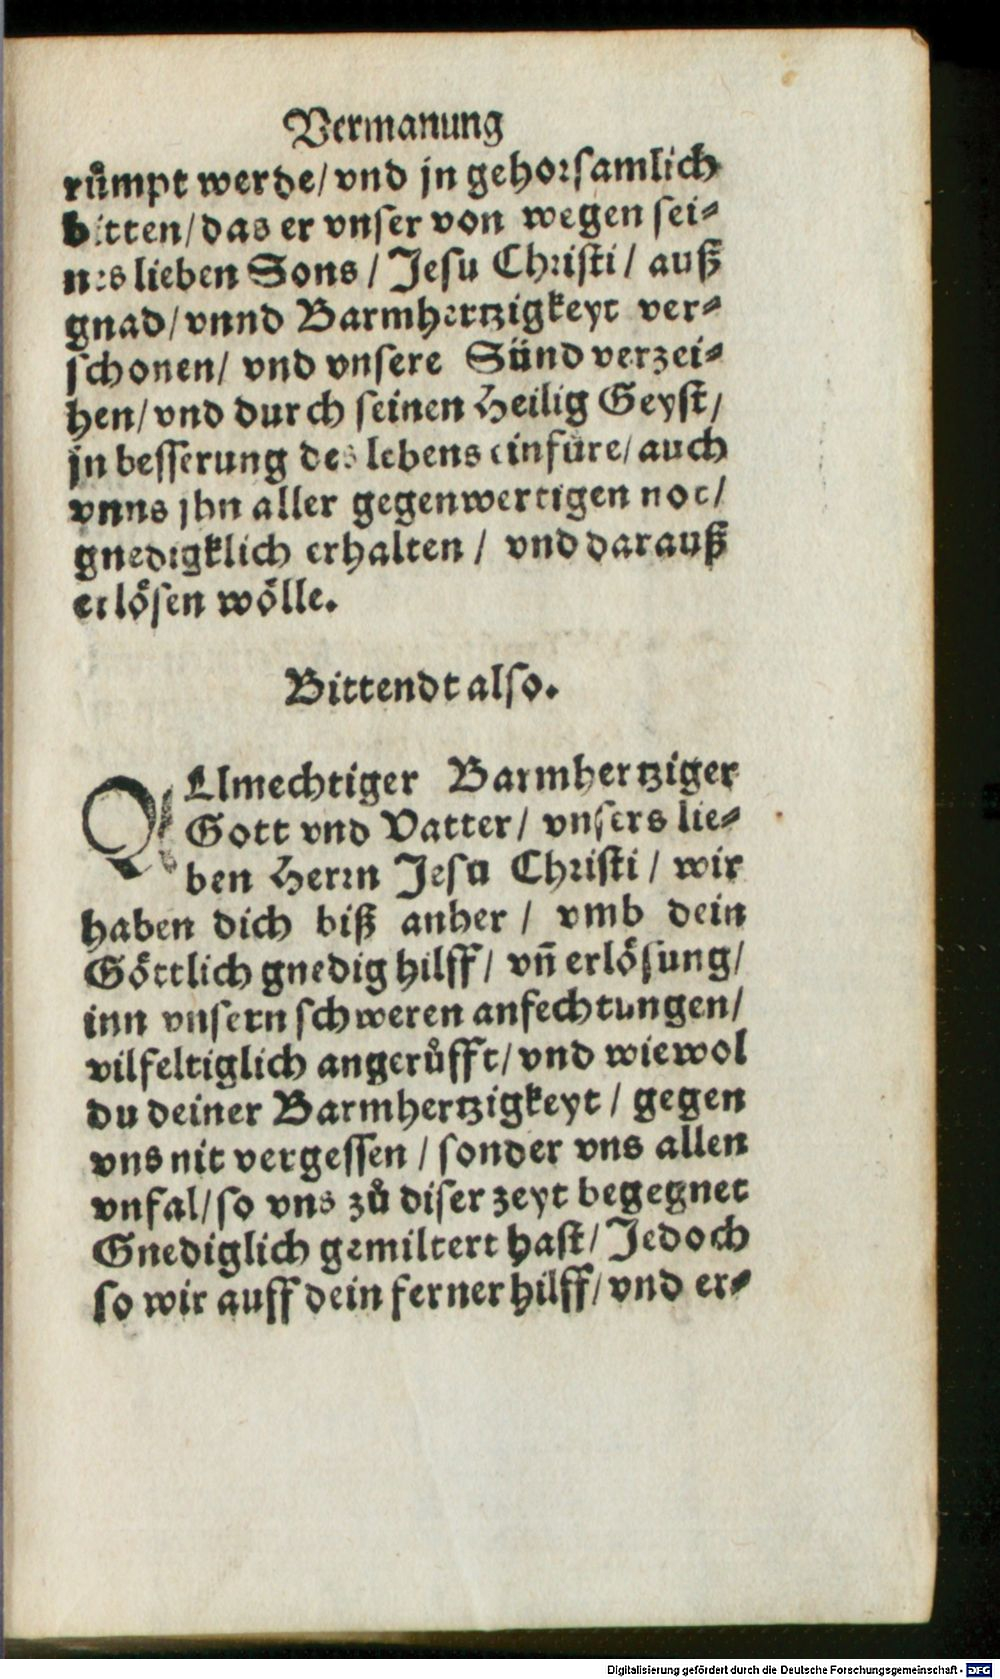 Vermanung
růmpt werde/ vnd jn gehorsamlich
bitten/ das er vnser von wegen sei⸗
nes lieben Sons / Jesu Christi / auß
gnad/ vnnd Barmhertzigkeyt ver⸗
schonen/ vnd vnsere Sünd verzei⸗
hen/ vnd durch seinen Heilig Geyst/
jn besserung des lebens einfüre/ auch
vnns jhn aller gegenwertigen not/
gnedigklich erhalten / vnd darauß
erlösen wölle.
Bittendt also.
ALlmechtiger Barmhertziger
Gott vnd Vatter/ vnsers lie⸗
ben Herrn Jesu Christi / wir
haben dich biß anher / vmb dein
Göttlich gnedig hilff/ vñ erlösung/
inn vnsern schweren anfechtungen/
vilfeltiglich angerůfft/ vnd wiewol
du deiner Barmhertzigkeyt / gegen
vns nit vergessen / sonder vns allen
vnfal/ so vns zů diser zeyt begegnet
Gnediglich gemiltert hast/ Jedoch
so wir auff dein ferner hilff/ vnd er⸗
Digitalisierung gefördert durch die Deutsche Forschungsgemeinschaft - DFG